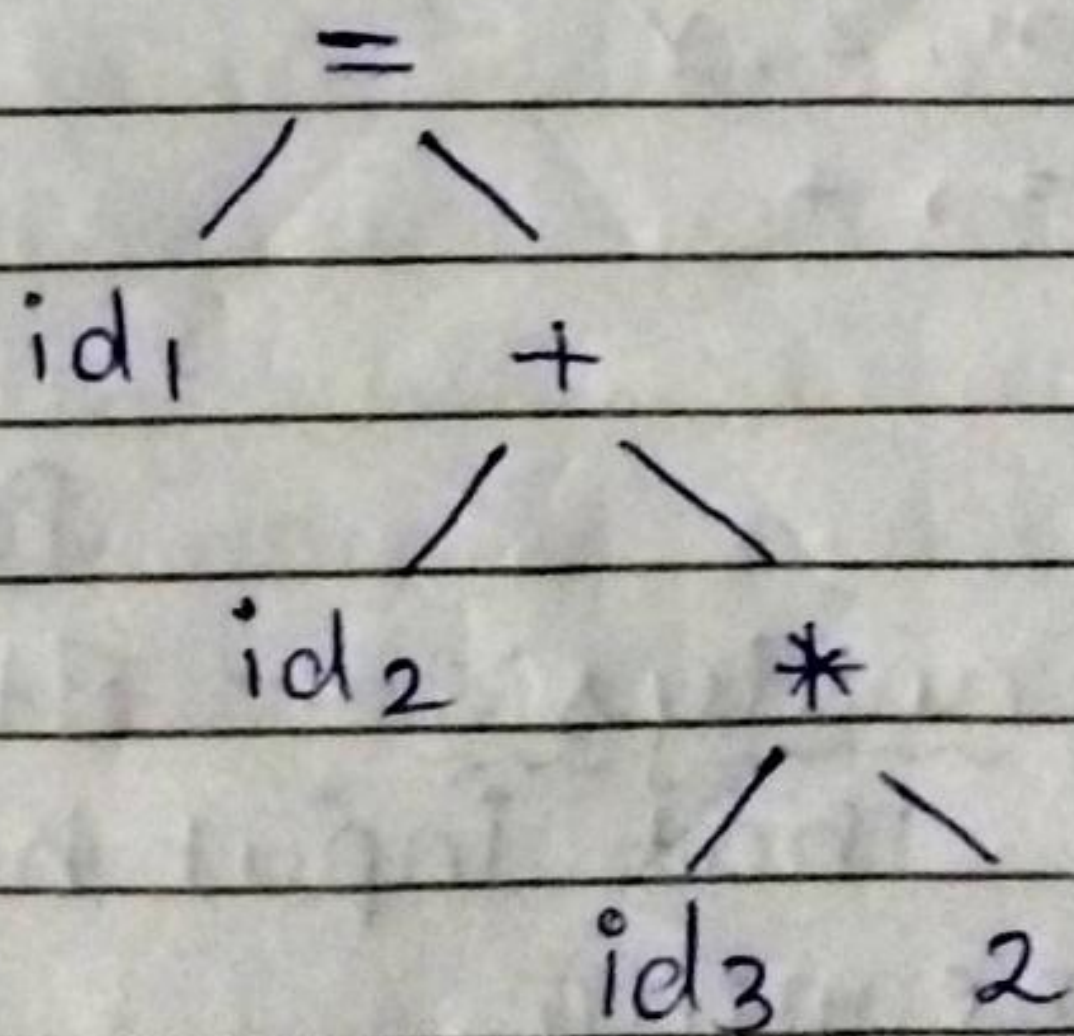 =
id1 +
id2 *
id3 2